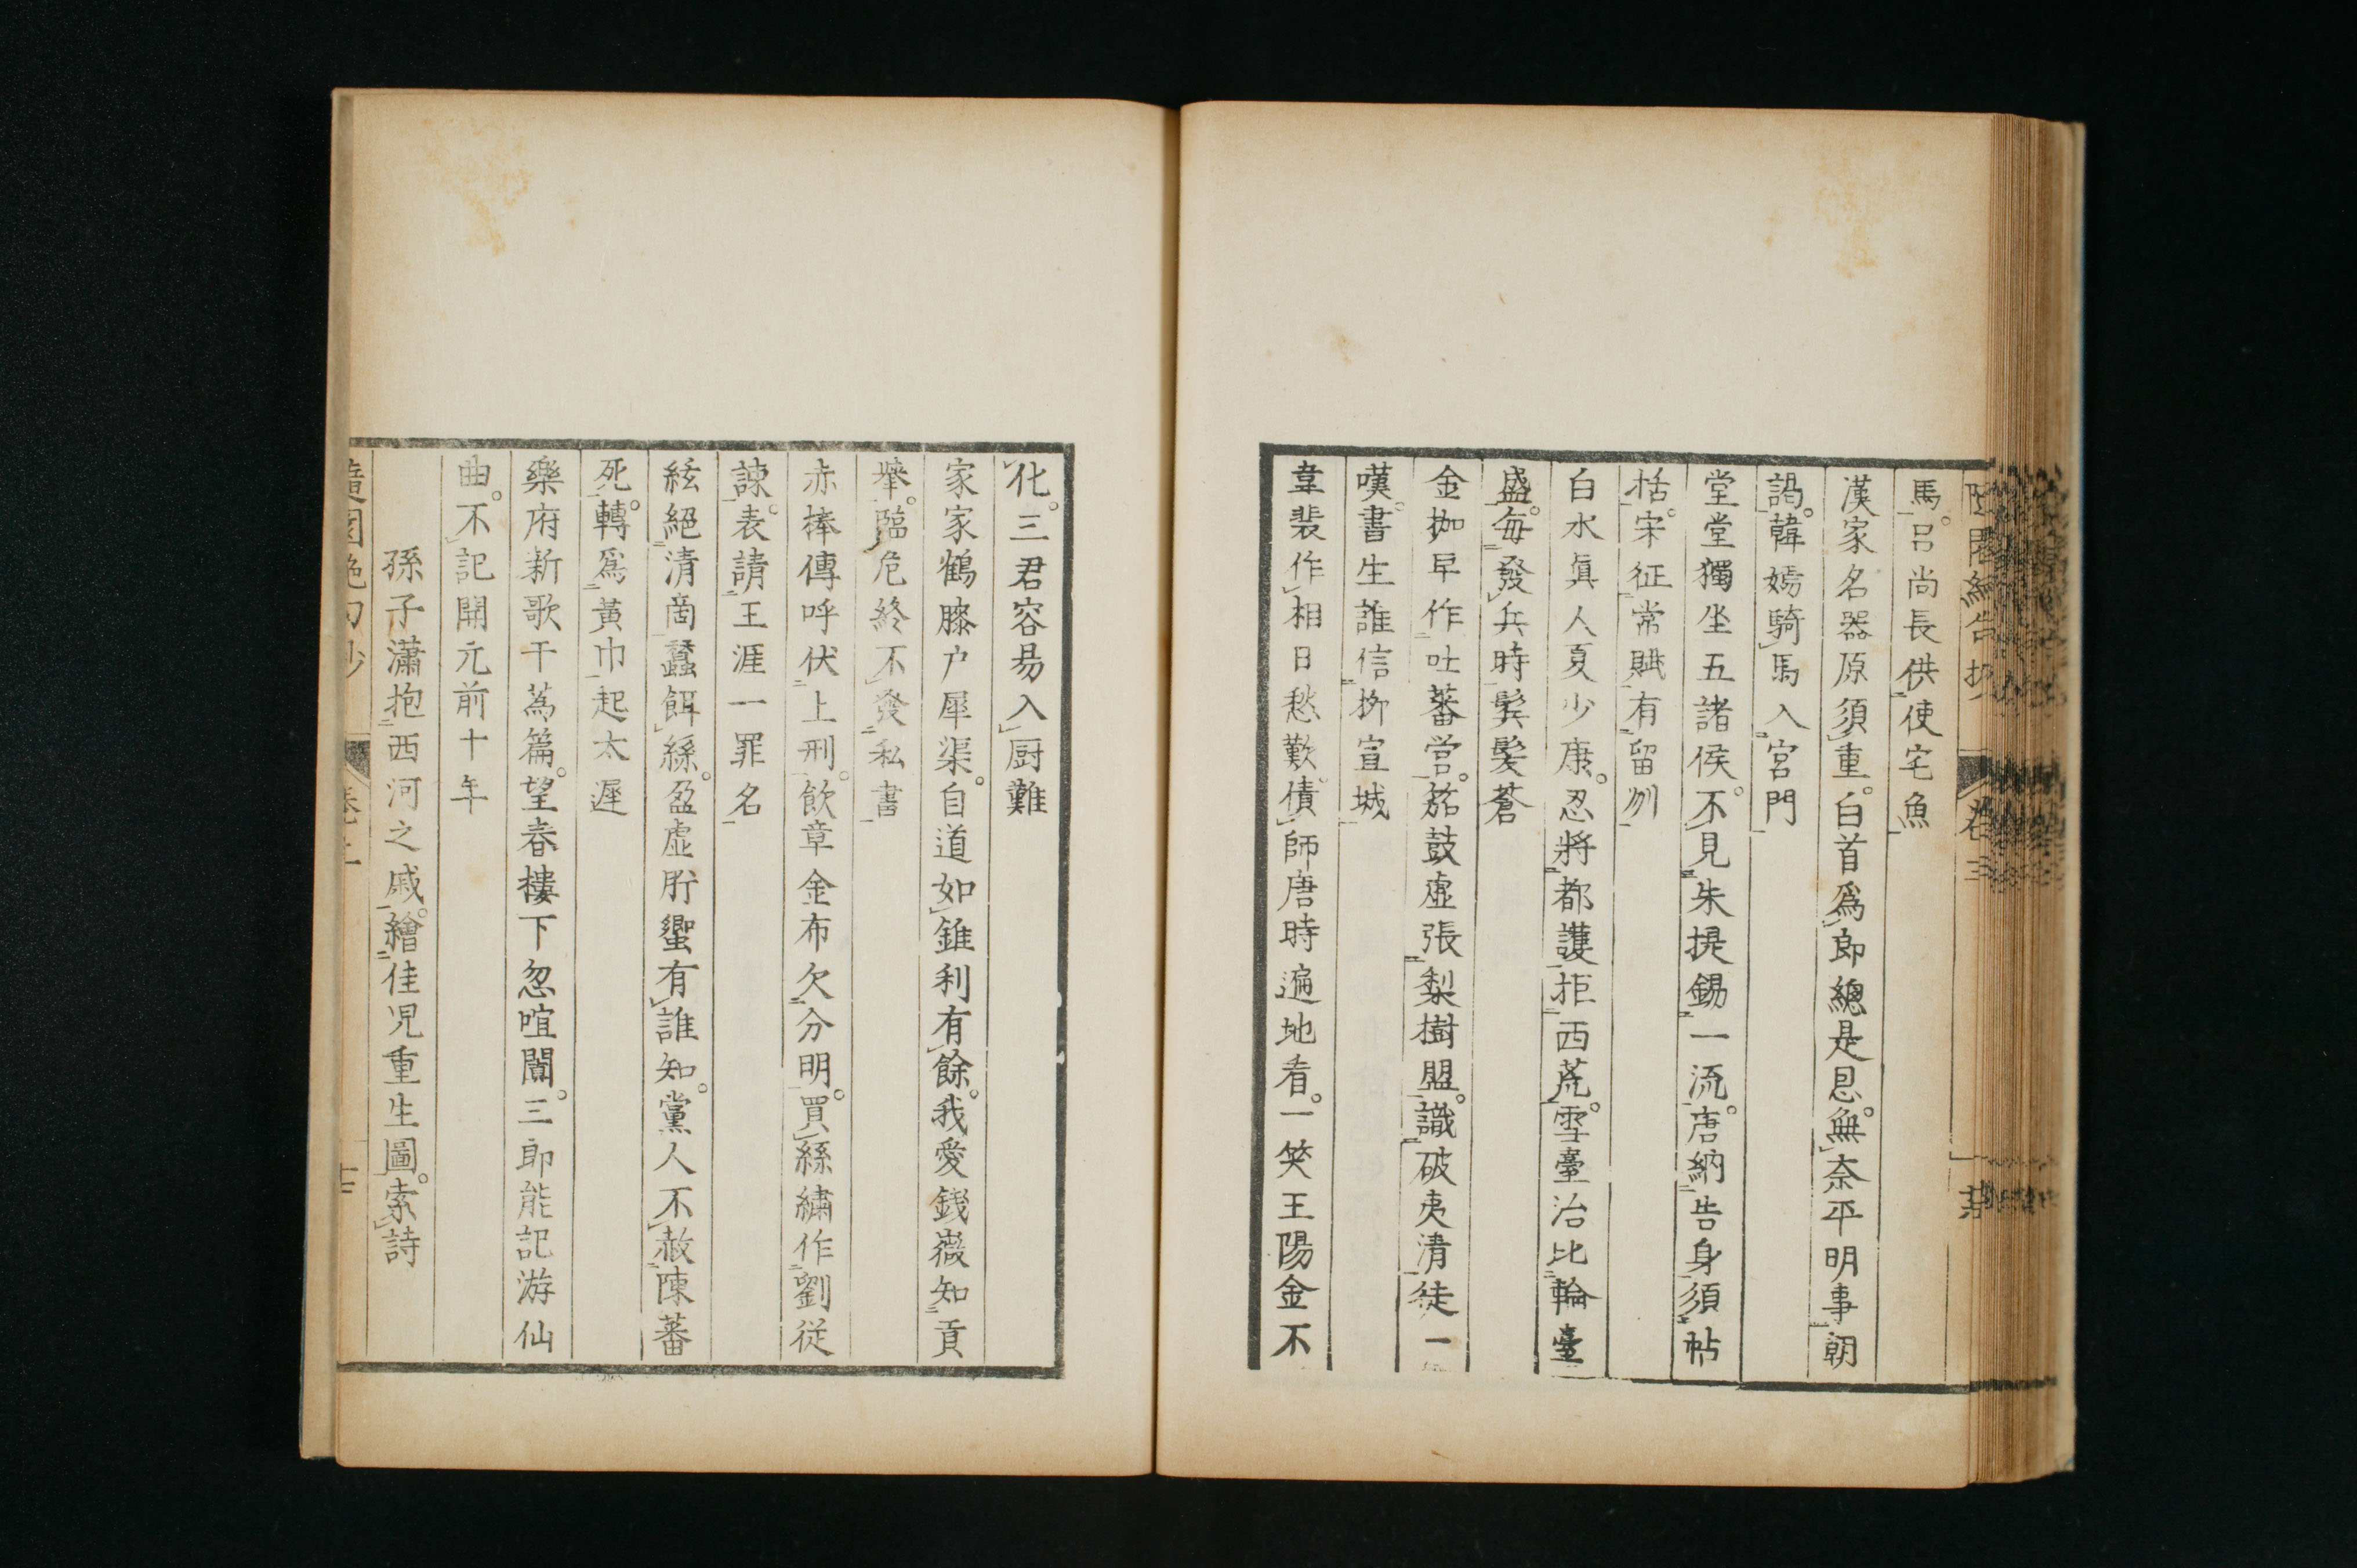 馬呂尚長供使宅魚
漢家名器原須重白首爲郎總是恩無奈平明事朝
謁韓嫣騎馬入宮門
堂堂獨坐五諸侯不見朱提錫一流唐納告身須帖
括宋征常賦有留州
白水眞人夏少康忍將都護拒西荒雪臺治比輪臺
盛每發兵時鬂髮蒼
金拗早作吐蕃營笳鼓虛張梨樹盟識破夷清徒一
嘆書生誰信柳宣城
韋裴作相日愁歎債師唐時遍地看一笑王陽金不
化三君容易入厨難
家家鶴膝户犀渠自道如錐利有餘我愛錢嶶知貢
擧臨危終不發私書
赤棒傳呼伏上刑飲章金布欠分明買絲繡作劉從
諫表請王涯一罪名
絃絕清商蠶餌絲盈虛肸蠁有誰知黨人不赦陳蕃
死轉爲黃巾起太遲
樂府新歌干蒍篇望春樓下忽喧闐三郎能記游仙
曲不記開元前十年
孫子瀟抱西河之戚繪佳児重生圖索詩